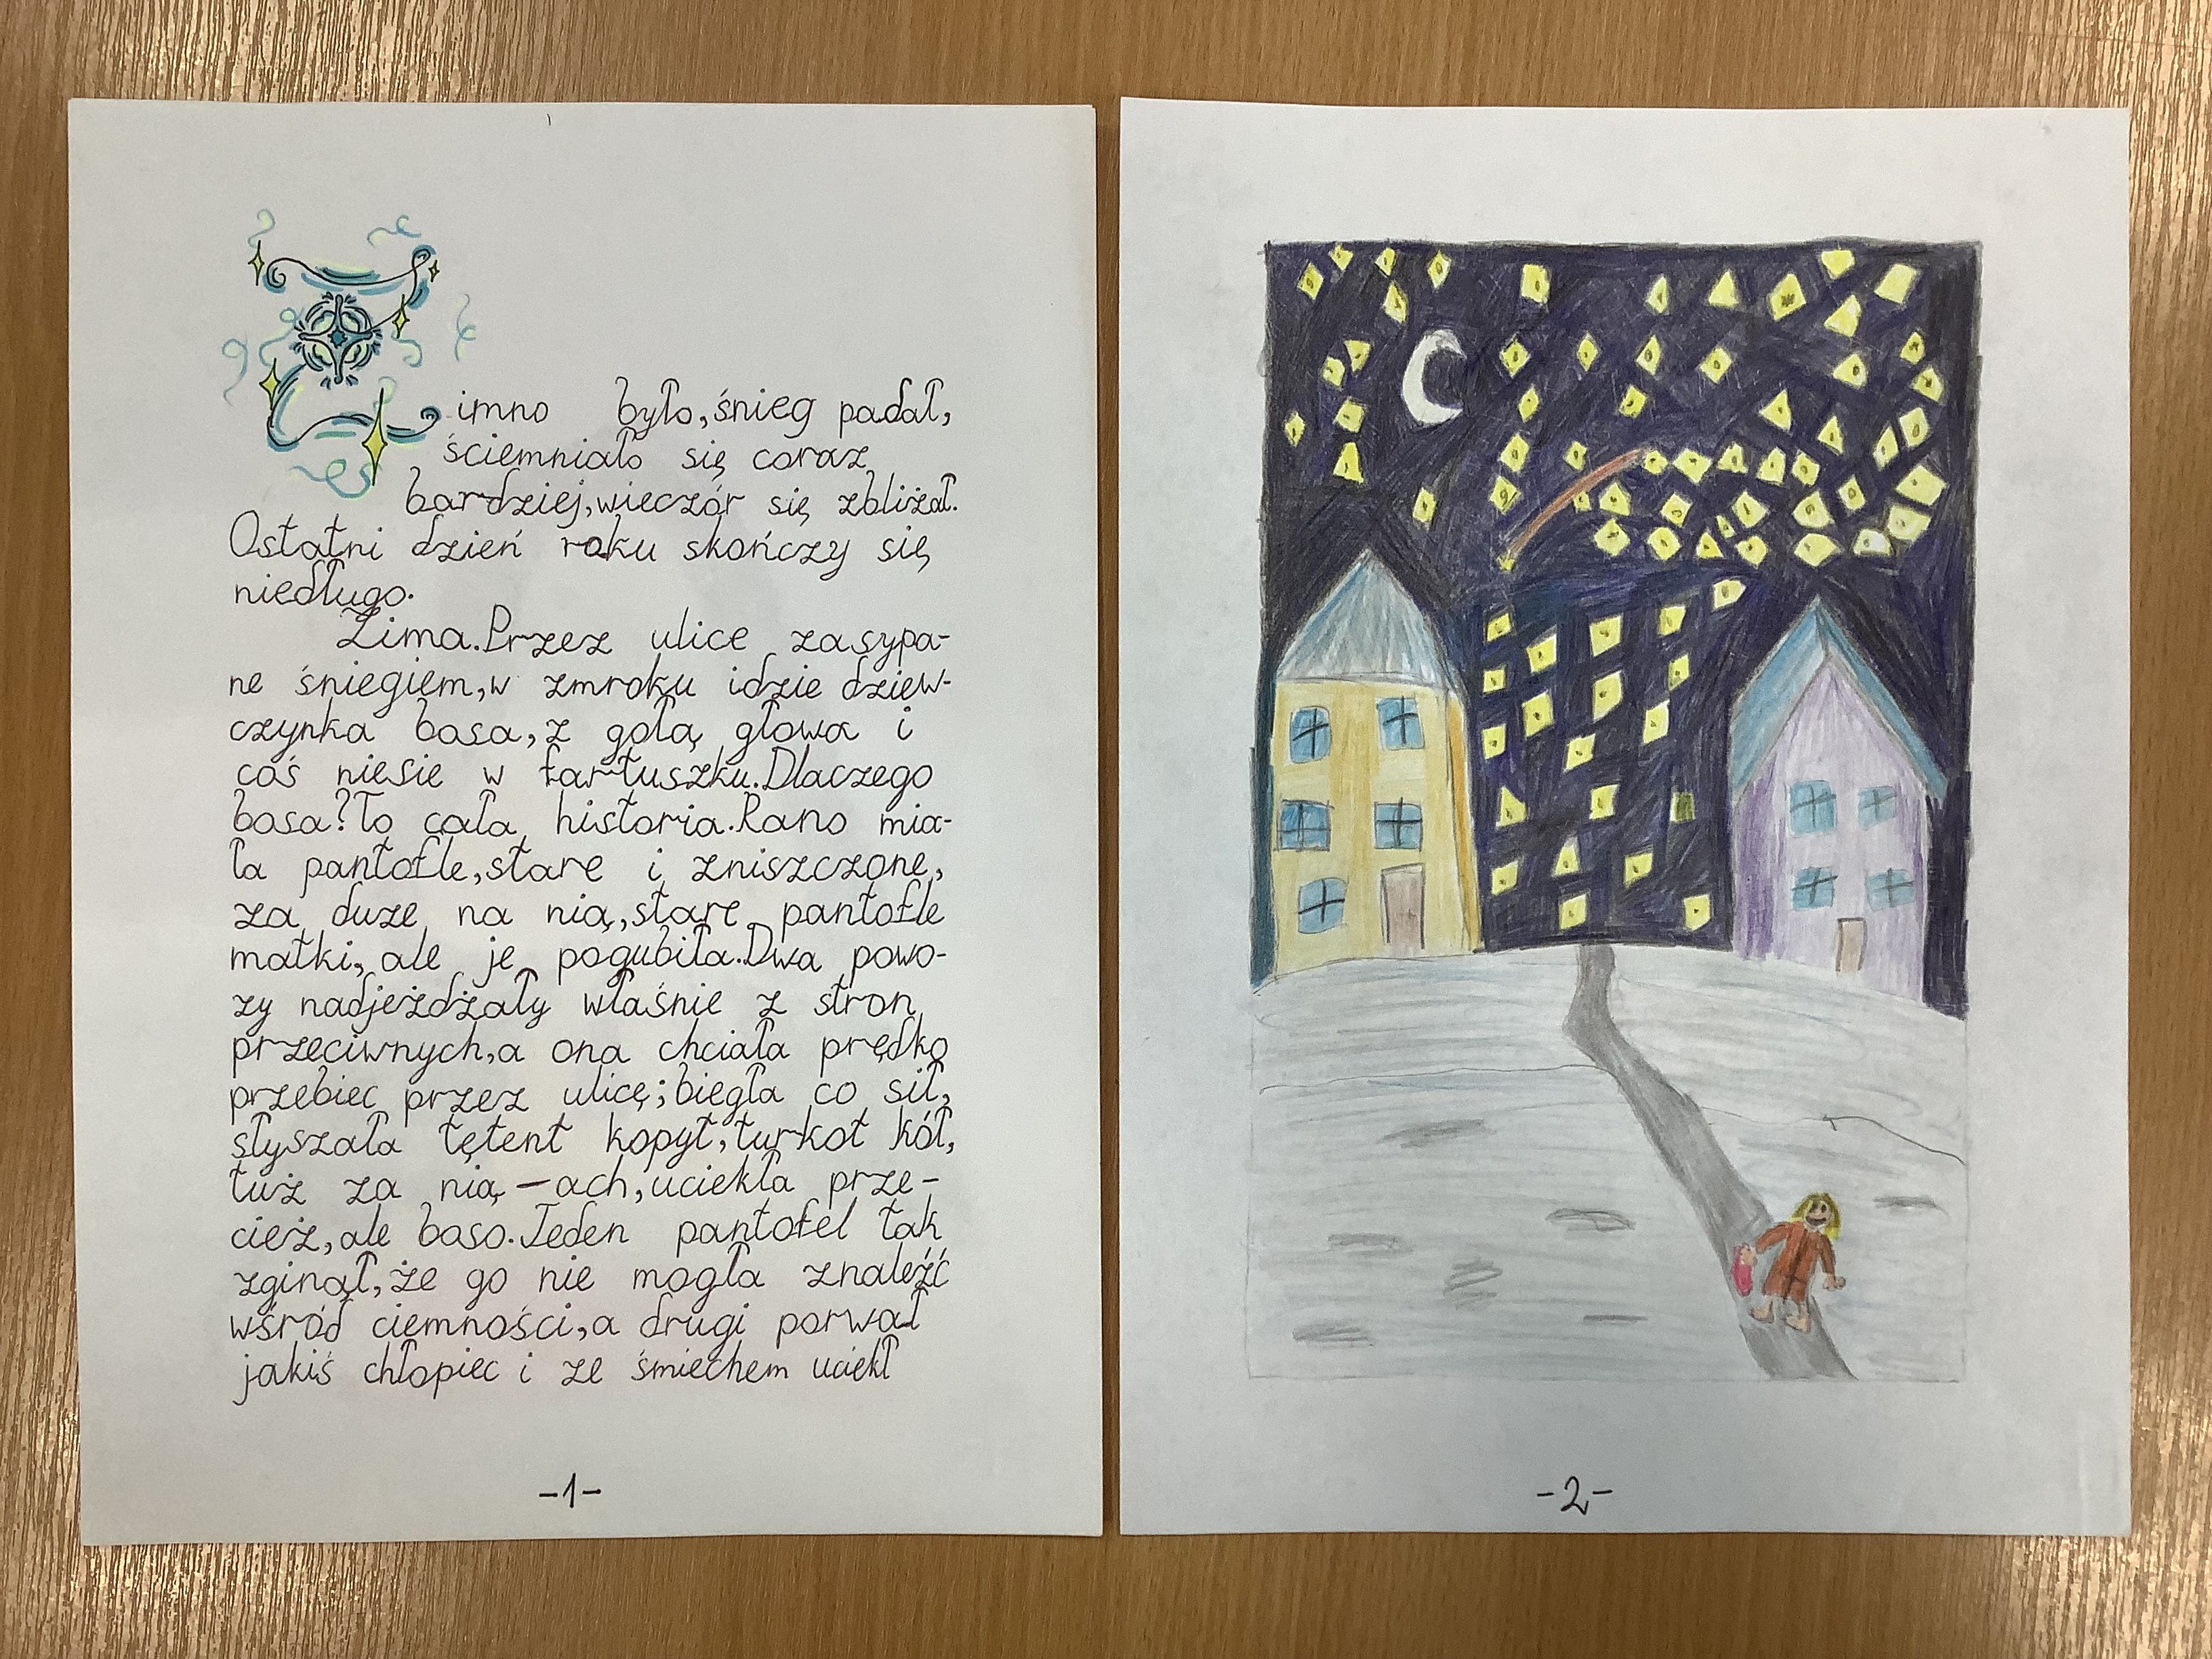 Zimno było, śnieg padał,
ściemniało się coraz
bardziej, wieczór się zbliżał.
Ostatni dzień roku skończy się
niedługo.
Zima. Przez ulice zasypa-
ne śniegiem, w zmroku idzie dziew-
czynka bosa, z gołą głowa i
coś niesie w fartuszku. Dlaczego
bosa? To cała historia. Rano mia-
ła pantofle, stare i zniszczone,
za duze na nią, stare pantofle
matki, ale je pogubiła. Dwa powo-
zy nadjeżdżały właśnie z stron
przeciwnych, a ona chciała prędko
przebiec przez ulicę; biegła co sił,
słyszała tętent kopyt, turkot kół,
tuż za nią – ach, uciekła prze-
cież, ale boso. Jeden pantofel tak
zginął, że go nie mogła znaleźć
wśród ciemności, a drugi porwał
jakiś chłopiec i ze śmiechem uciekł
-1-
-2-